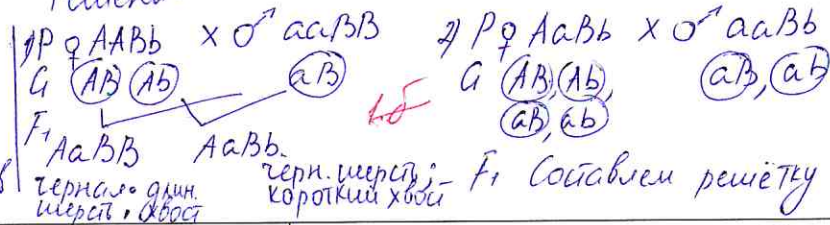 1) P ♀ AABb × ♂ aaBB
G (AB) (Ab) (aB)
F₁ AaBB AaBb.
черная длин.
шерсть, хвост
черн. шерсть;
короткий хвост
1б
2) P ♀ AaBb × ♂ aaBb
G (AB), (Ab), (aB), (ab)
(aB), (ab)
F₁ Составлем решётку